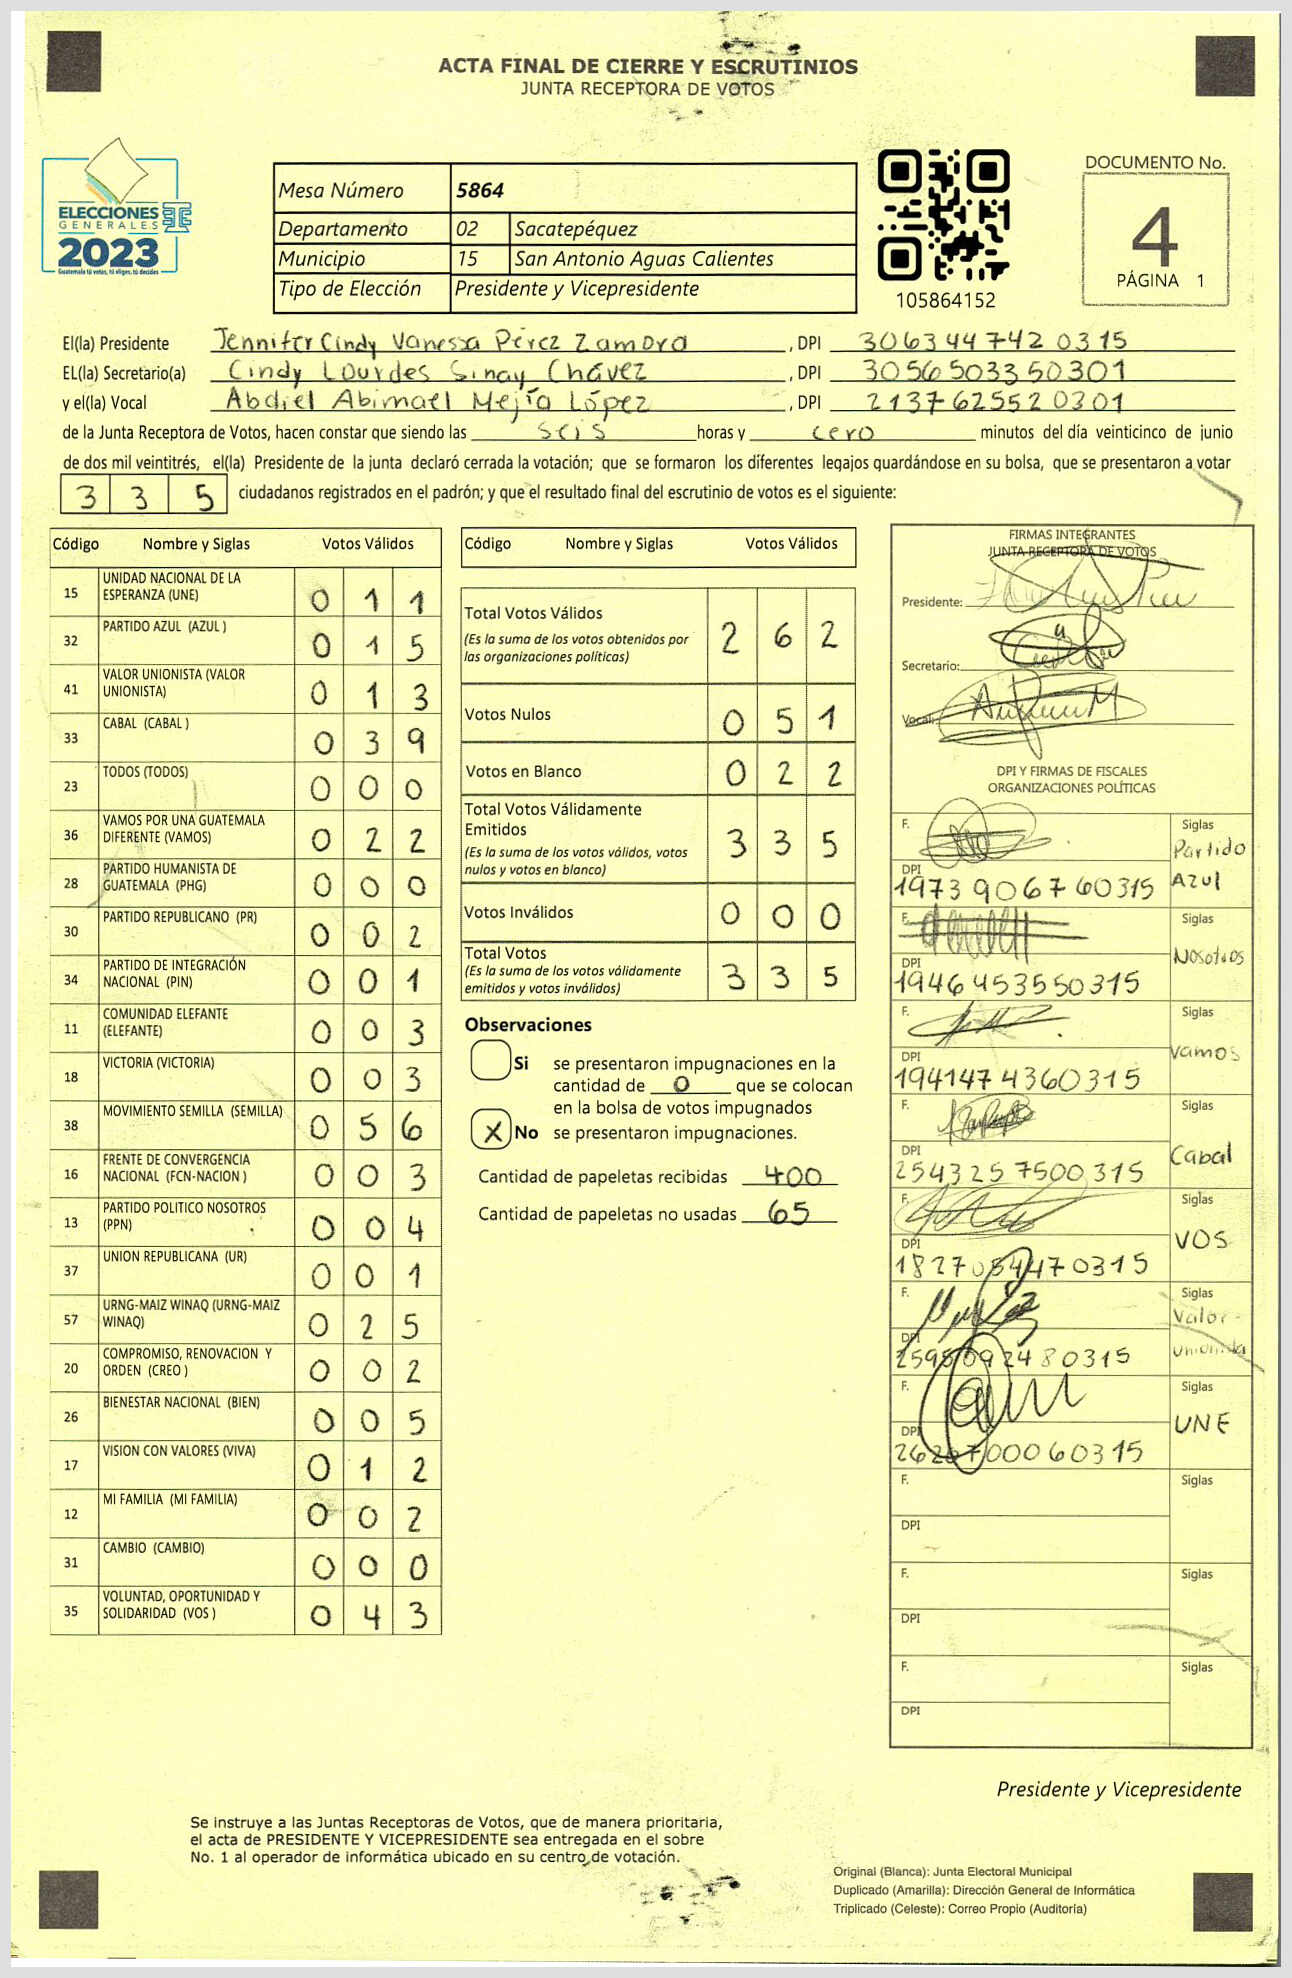 ACTA FINAL DE CIERRE Y ESCRUTINIOS
JUNTA RECEPTORA DE VOTOS
ELECCIONES
GENERALES
2023
Guatemala tú votas, tú eliges, tú decides
Mesa Número 5864
Departamento 02 Sacatepéquez
Municipio 15 San Antonio Aguas Calientes
Tipo de Elección Presidente y Vicepresidente
105864152
DOCUMENTO No.
4
PÁGINA 1
El(la) Presidente Jennifer Cindy Vanessa Pérez Zamora, DPI 3063447420315
EL(la) Secretario(a) Cindy Lourdes Sinay Chávez, DPI 3056503350301
y el(la) Vocal Abdiel Abimael Mejía López, DPI 2137625520301
de la Junta Receptora de Votos, hacen constar que siendo las seis horas y cero minutos del día veinticinco de junio
de dos mil veintitrés, el(la) Presidente de la junta declaró cerrada la votación; que se formaron los diferentes legajos guardándose en su bolsa, que se presentaron a votar
335 ciudadanos registrados en el padrón; y que el resultado final del escrutinio de votos es el siguiente:
Código Nombre y Siglas Votos Válidos
15 UNIDAD NACIONAL DE LA ESPERANZA (UNE) 0 1 1
32 PARTIDO AZUL (AZUL ) 0 1 5
41 VALOR UNIONISTA (VALOR UNIONISTA) 0 1 3
33 CABAL (CABAL ) 0 3 9
23 TODOS (TODOS) 0 0 0
36 VAMOS POR UNA GUATEMALA DIFERENTE (VAMOS) 0 2 2
28 PARTIDO HUMANISTA DE GUATEMALA (PHG) 0 0 0
30 PARTIDO REPUBLICANO (PR) 0 0 2
34 PARTIDO DE INTEGRACIÓN NACIONAL (PIN) 0 0 1
11 COMUNIDAD ELEFANTE (ELEFANTE) 0 0 3
18 VICTORIA (VICTORIA) 0 0 3
38 MOVIMIENTO SEMILLA (SEMILLA) 0 5 6
16 FRENTE DE CONVERGENCIA NACIONAL (FCN-NACION ) 0 0 3
13 PARTIDO POLITICO NOSOTROS (PPN) 0 0 4
37 UNION REPUBLICANA (UR) 0 0 1
57 URNG-MAIZ WINAQ (URNG-MAIZ WINAQ) 0 2 5
20 COMPROMISO, RENOVACION Y ORDEN (CREO ) 0 0 2
26 BIENESTAR NACIONAL (BIEN) 0 0 5
17 VISION CON VALORES (VIVA) 0 1 2
12 MI FAMILIA (MI FAMILIA) 0 0 2
31 CAMBIO (CAMBIO) 0 0 0
35 VOLUNTAD, OPORTUNIDAD Y SOLIDARIDAD (VOS ) 0 4 3
Código Nombre y Siglas Votos Válidos
Total Votos Válidos 2 6 2
(Es la suma de los votos obtenidos por
las organizaciones políticas)
Votos Nulos 0 5 1
Votos en Blanco 0 2 2
Total Votos Válidamente
Emitidos 3 3 5
(Es la suma de los votos válidos, votos
nulos y votos en blanco)
Votos Inválidos 0 0 0
Total Votos 3 3 5
(Es la suma de los votos válidamente
emitidos y votos inválidos)
Observaciones
Si se presentaron impugnaciones en la
cantidad de 0 que se colocan
en la bolsa de votos impugnados
X No se presentaron impugnaciones.
Cantidad de papeletas recibidas 400
Cantidad de papeletas no usadas 65
FIRMAS INTEGRANTES
JUNTA RECEPTORA DE VOTOS
Presidente:
Secretario:
Vocal:
DPI Y FIRMAS DE FISCALES
ORGANIZACIONES POLÍTICAS
F. Siglas
Partido
Azul
DPI
1973906760315
F. Siglas
Nosotros
DPI
1946453550315
F. Siglas
Vamos
DPI
1941474360315
F. Siglas
Cabal
DPI
2543257500315
F. Siglas
VOS
DPI
F. Siglas
Valor
DPI
F. Siglas
UNE
DPI
F. Siglas
DPI
F. Siglas
DPI
F. Siglas
DPI
Presidente y Vicepresidente
Se instruye a las Juntas Receptoras de Votos, que de manera prioritaria,
el acta de PRESIDENTE Y VICEPRESIDENTE sea entregada en el sobre
No. 1 al operador de informática ubicado en su centro de votación.
Original (Blanca): Junta Electoral Municipal
Duplicado (Amarilla): Dirección General de Informática
Triplicado (Celeste): Correo Propio (Auditoría)